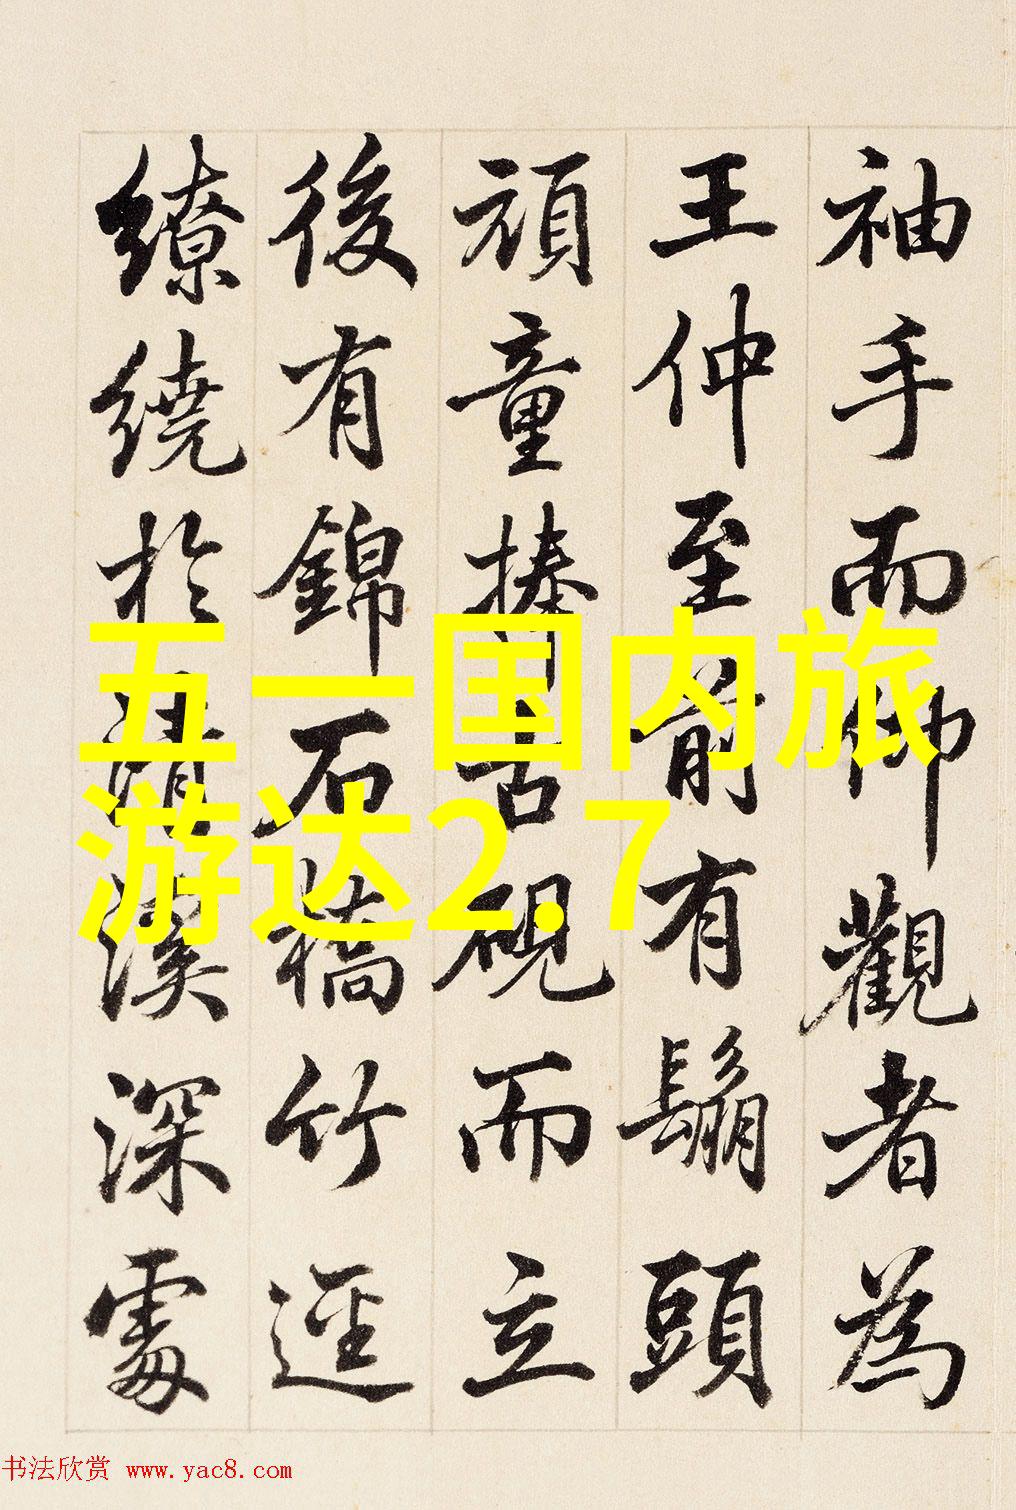 袖手而仰觀者為
王仲至前有鬅頭
頑童捧古硯而立
後有錦石橋竹逕
繚繞於清溪深處
五一国内旅
游达2.7
书法欣赏 www.yac8.com